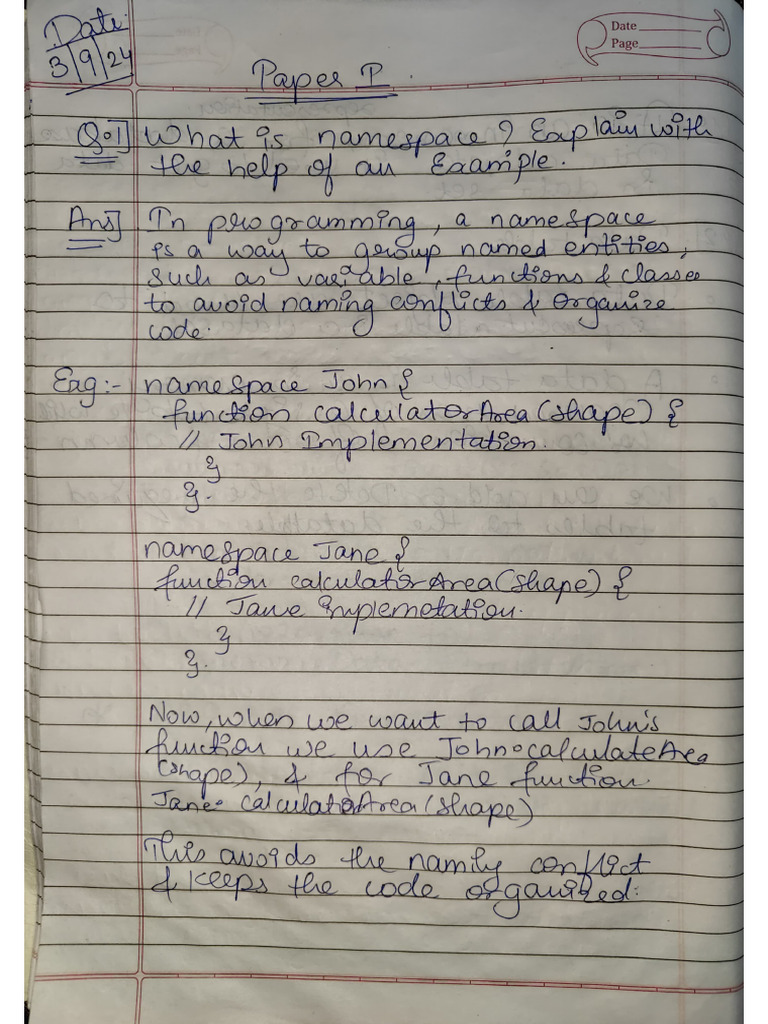 Date:
3/9/24
Date
Page
Paper P.
Q.1] What is namespace? Explain with
the help of an Example.
Ans] In programming, a namespace
is a way to group named entities,
such as variable, functions & classes
to avoid naming conflicts & organize
code.
Exg:- namespace John {
function calculatorArea(shape) {
// John Implementation.
}
}.
namespace Jane {
function calculatorArea(shape) {
// Jane Implemetation.
}
}.
Now, when we want to call John's
function we use John.calculateArea
(shape), & for Jane function
Jane. calculatorArea(shape)
This avoids the namily conflict
& keeps the code organized.